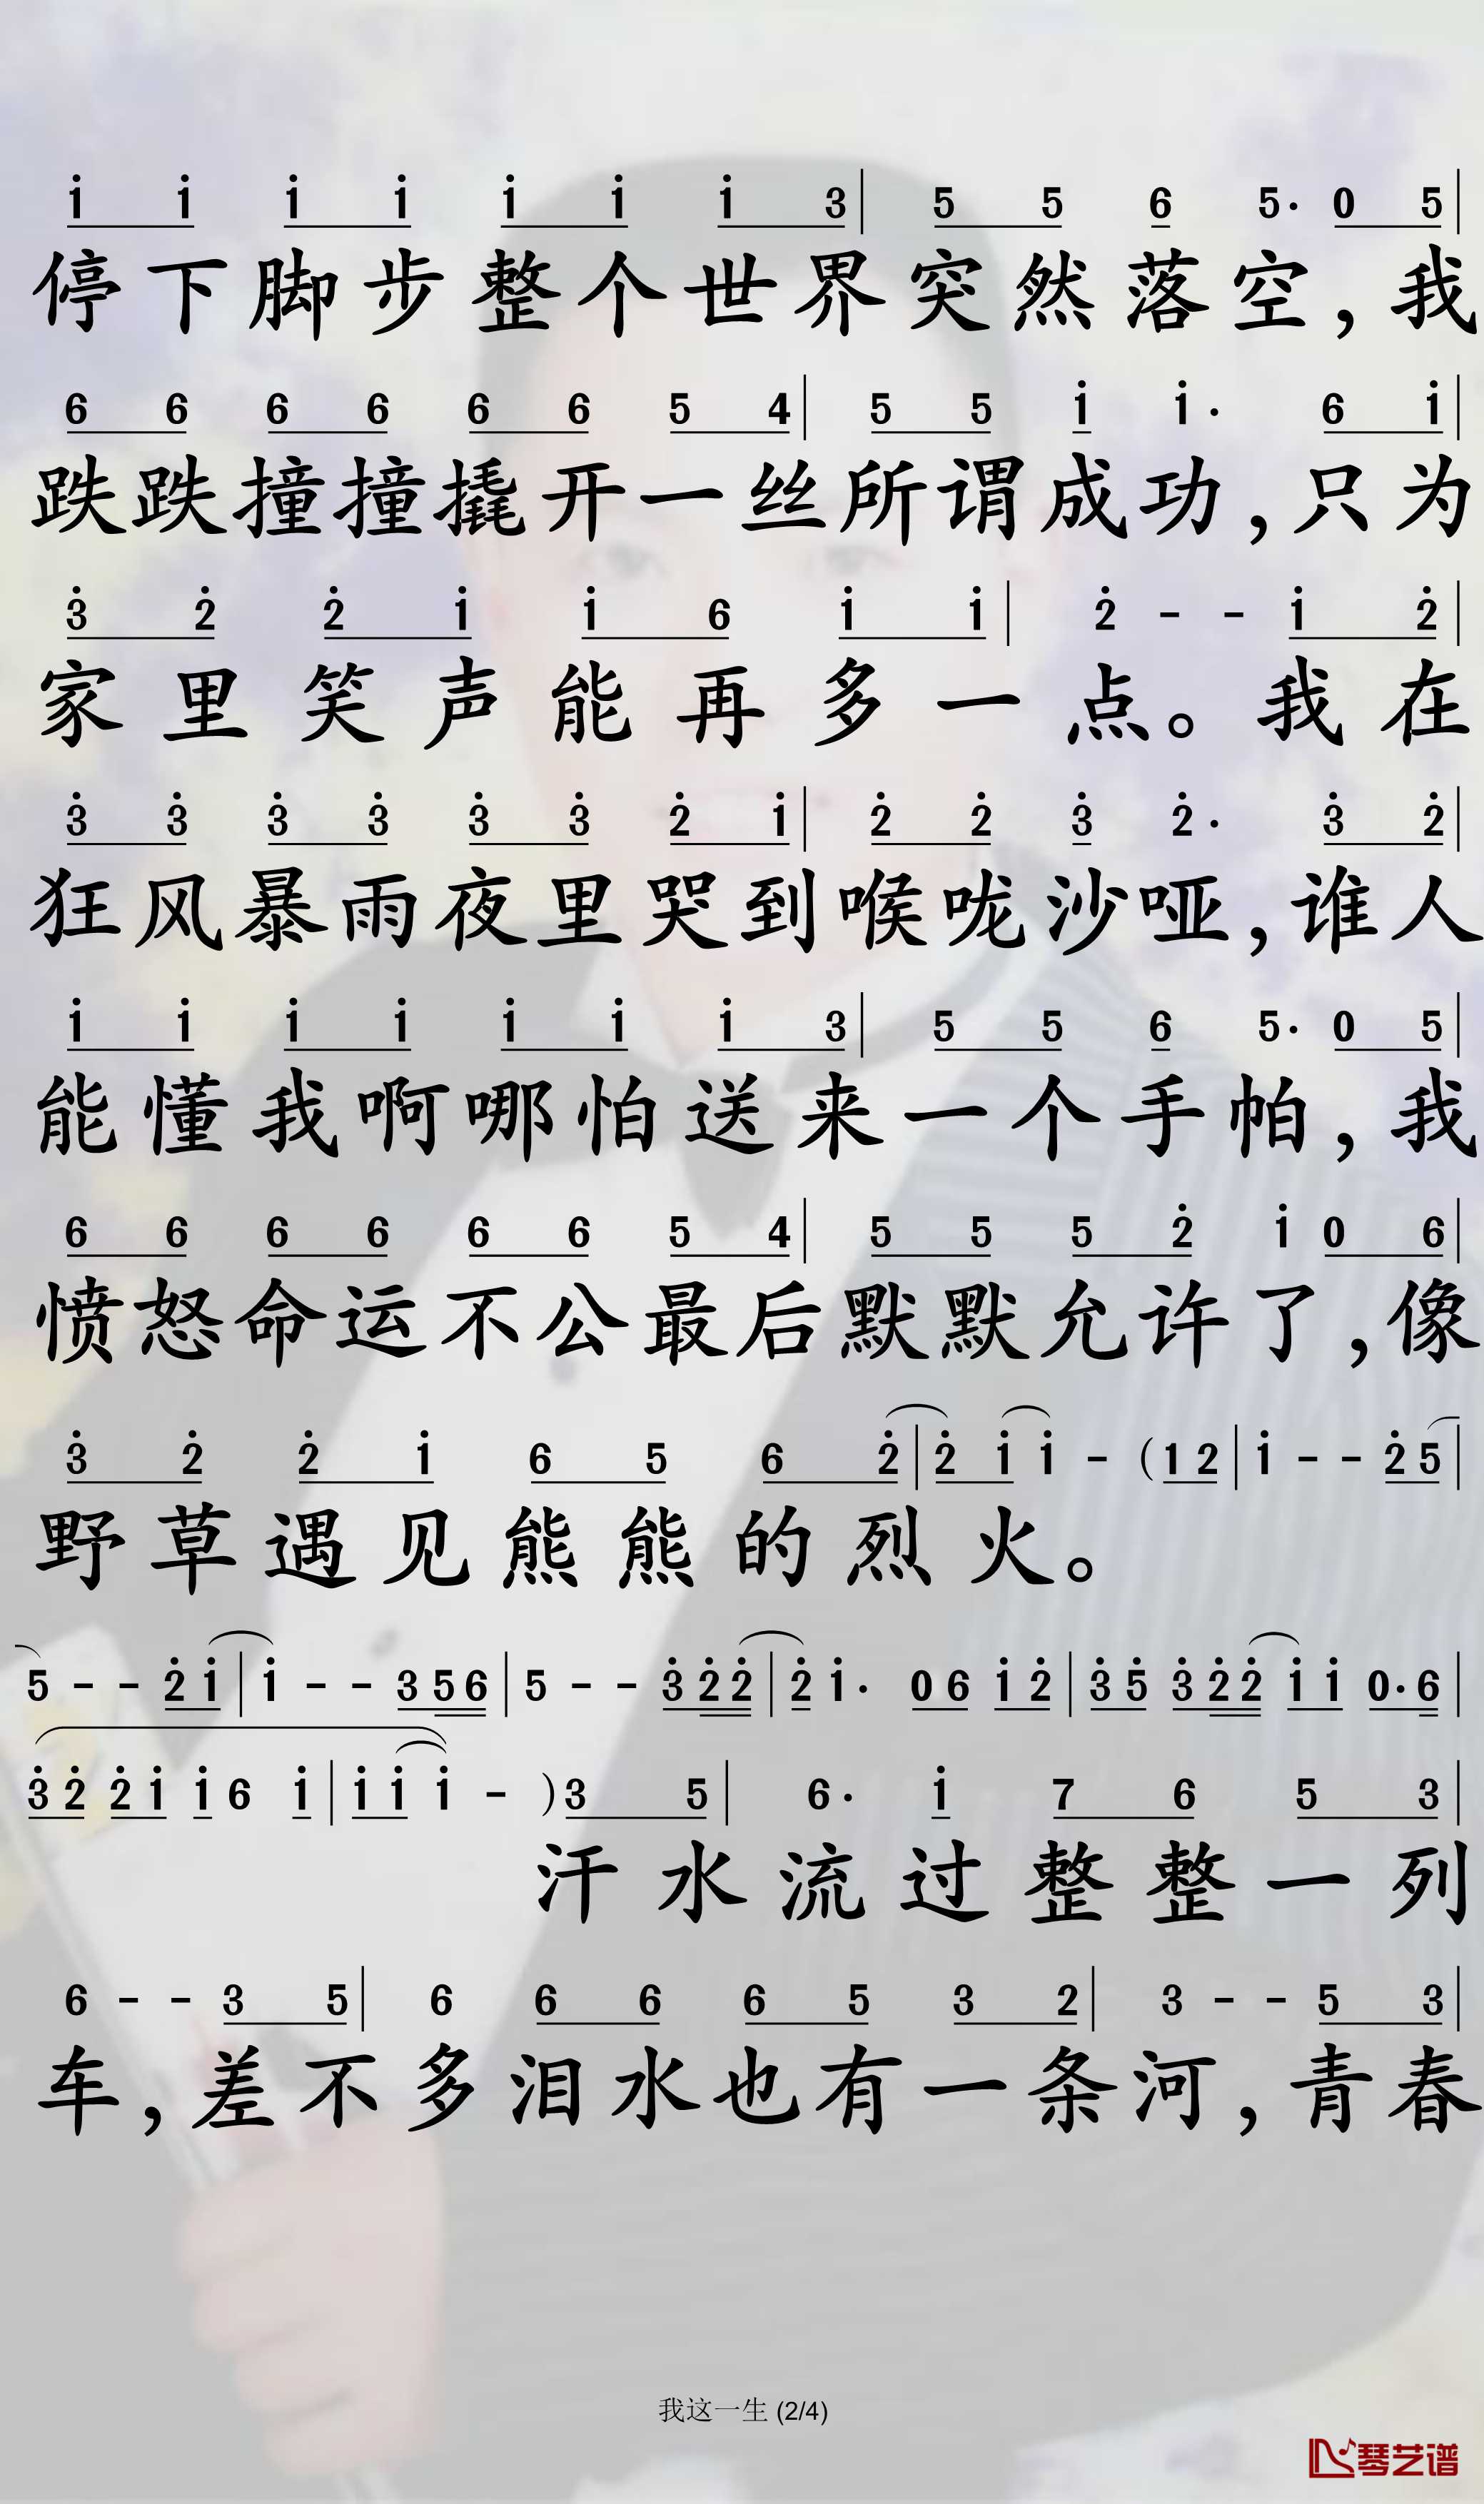 i i i i i i i 3 | 5 5 6 5· 0 5 |
停下脚步整个世界突然落空,我
6 6 6 6 6 6 5 4 | 5 5 i i· 6 i |
跌跌撞撞撬开一丝所谓成功,只为
3̇ 2̇ 2̇ i i 6 i i | 2̇ - - i 2̇ |
家里笑声能再多一点。我在
3̇ 3̇ 3̇ 3̇ 3̇ 3̇ 2̇ i | 2̇ 2̇ 3̇ 2̇· 3̇ 2̇ |
狂风暴雨夜里哭到喉咙沙哑,谁人
i i i i i i i 3 | 5 5 6 5· 0 5 |
能懂我啊哪怕送来一个手帕,我
6 6 6 6 6 6 5 4 | 5 5 5 2̇ i 0 6 |
愤怒命运不公最后默默允许了,像
3̇ 2̇ 2̇ i 6 5 6 2̇ | 2̇ i i - (1 2 | i - - 2̇ 5 |
野草遇见熊熊的烈火。
5 - - 2̇ i | i - - 3 5 6 | 5 - - 3̇ 2̇ 2̇ | 2̇ i· 0 6 i 2̇ | 3̇ 5̇ 3̇ 2̇ 2̇ i i 0· 6 |
3̇ 2̇ 2̇ i i 6 i | i i i - ) 3 5 | 6· i 7 6 5 3 |
汗水流过整整一列
6 - - 3 5 | 6 6 6 6 5 3 2 | 3 - - 5 3 |
车,差不多泪水也有一条河,青春
我这一生 (2/4)
琴艺谱